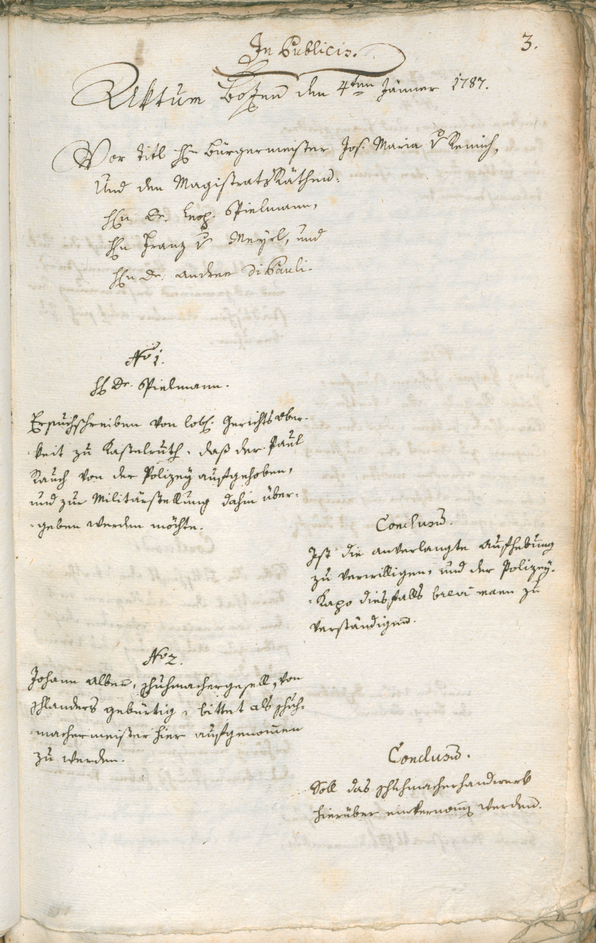 3.
In Publicis.
Aktum Botzen den 4ten Jänner 1787.
Vor Titl Hn Bürgermeister Jos. Maria v Remich,
Und den Magistrats Räthen:
HHn Dr. Leop. Spielmann,
HHn Franz v Meyrl, und
HHn Dr. Andree Di Pauli.
No 1.
HH Dr. Spielmann.
Ersuchschreiben von lobl. Gerichts Ober-
keit zu Kastelruth. daß der Paul
Rauch von der Polizey aufgehoben,
und zur Militärstellung dahin über-
geben werden möchte.
Conclusum.
Ist die anverlangte Aufhebung
zu verwilligen, und der Polizey-
Kapo diesfalls brevi manu zu
verständigen.
No 2.
Johann Alber, Schuhmachergesell, von
Schlanders gebürtig, bittet als Schuh-
machermeister hier aufgenommen
zu werden.
Conclusum.
Soll das Schuhmacherhandwerk
hierüber einvernomm werden.